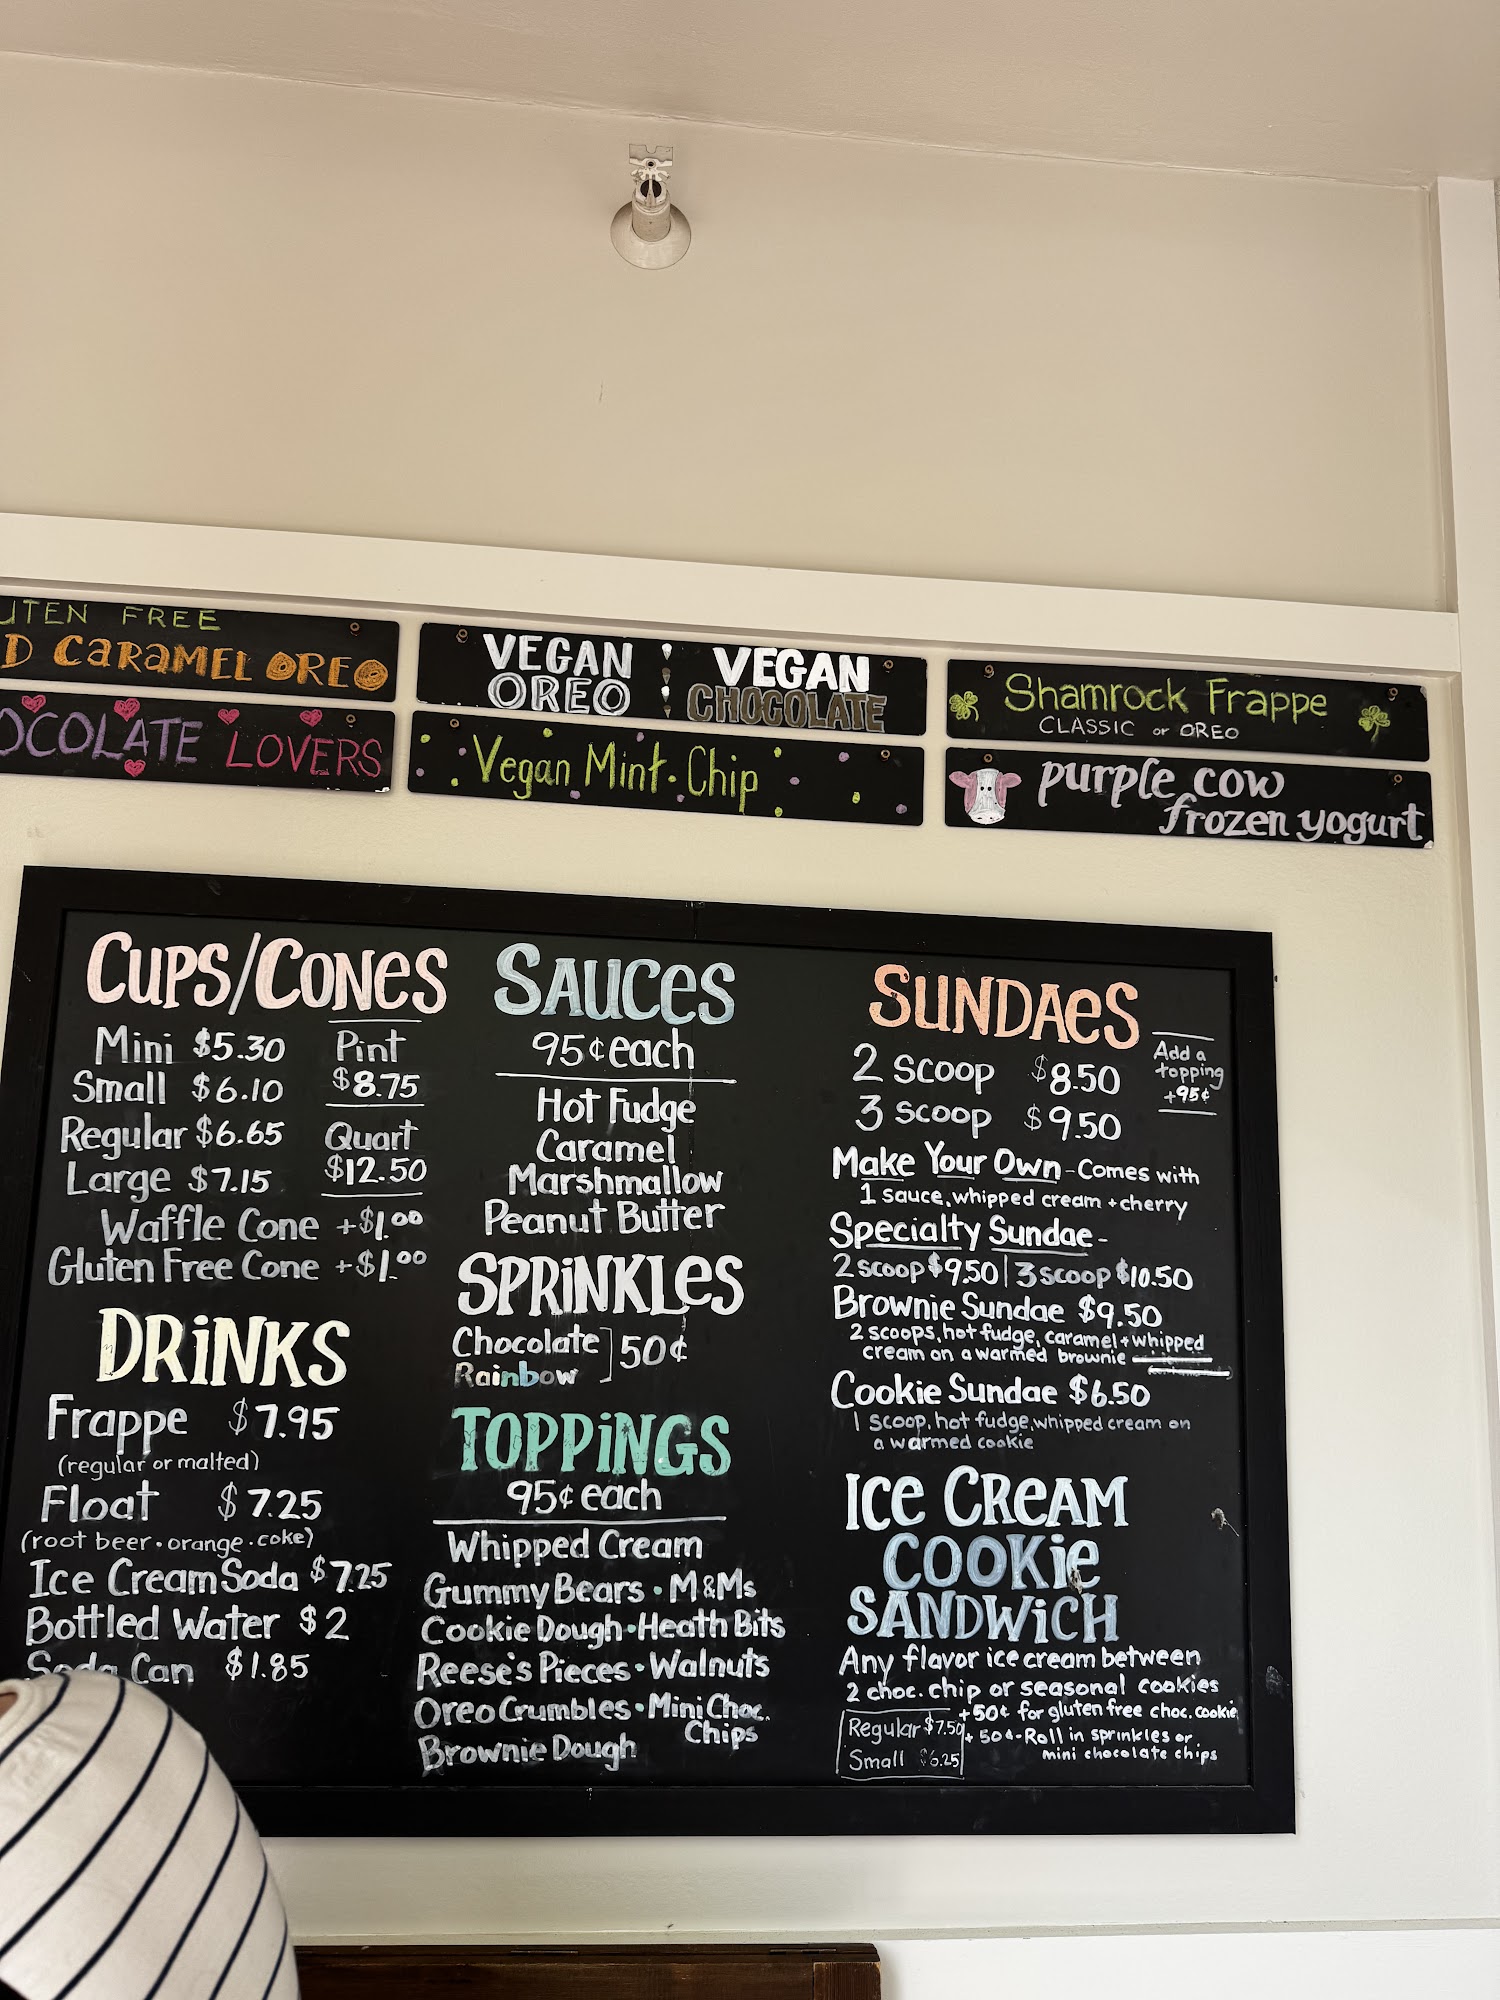 FREE
CARAMEL OREO
LOVERS
VEGAN
OREO
VEGAN
CHOCOLATE
Vegan Mint Chip
Shamrock Frappe
CLASSIC or OREO
purple cow
frozen yogurt
CUPS/CONES
Mini $5.30
Small $6.10
Regular $6.65
Large $7.15
Pint
$8.75
Quart
$12.50
Waffle Cone +$1.00
Gluten Free Cone +$1.00
DRINKS
Frappe $7.95
(regular or malted)
Float $7.25
(root beer • orange • coke)
Ice Cream Soda $7.25
Bottled Water $2
Soda Can $1.85
SAUCES
95¢ each
Hot Fudge
Caramel
Marshmallow
Peanut Butter
SPRINKLES
Chocolate
Rainbow
50¢
TOPPINGS
95¢ each
Whipped Cream
Gummy Bears • M&Ms
Cookie Dough • Heath Bits
Reese's Pieces • Walnuts
Oreo Crumbles • Mini Choc.
Chips
Brownie Dough
SUNDAES
2 scoop $8.50
3 scoop $9.50
Add a
topping
+95¢
Make Your Own - Comes with
1 sauce, whipped cream + cherry
Specialty Sundae -
2 scoop $9.50 | 3 scoop $10.50
Brownie Sundae $9.50
2 scoops, hot fudge, caramel + whipped
cream on a warmed brownie
Cookie Sundae $6.50
1 scoop, hot fudge, whipped cream on
a warmed cookie
ICE CREAM
COOKIE
SANDWICH
Any flavor ice cream between
2 choc. chip or seasonal cookies
+50¢ for gluten free choc. cookie
+ 50¢ - Roll in sprinkles or
mini chocolate chips
Regular $7.50
Small $6.25